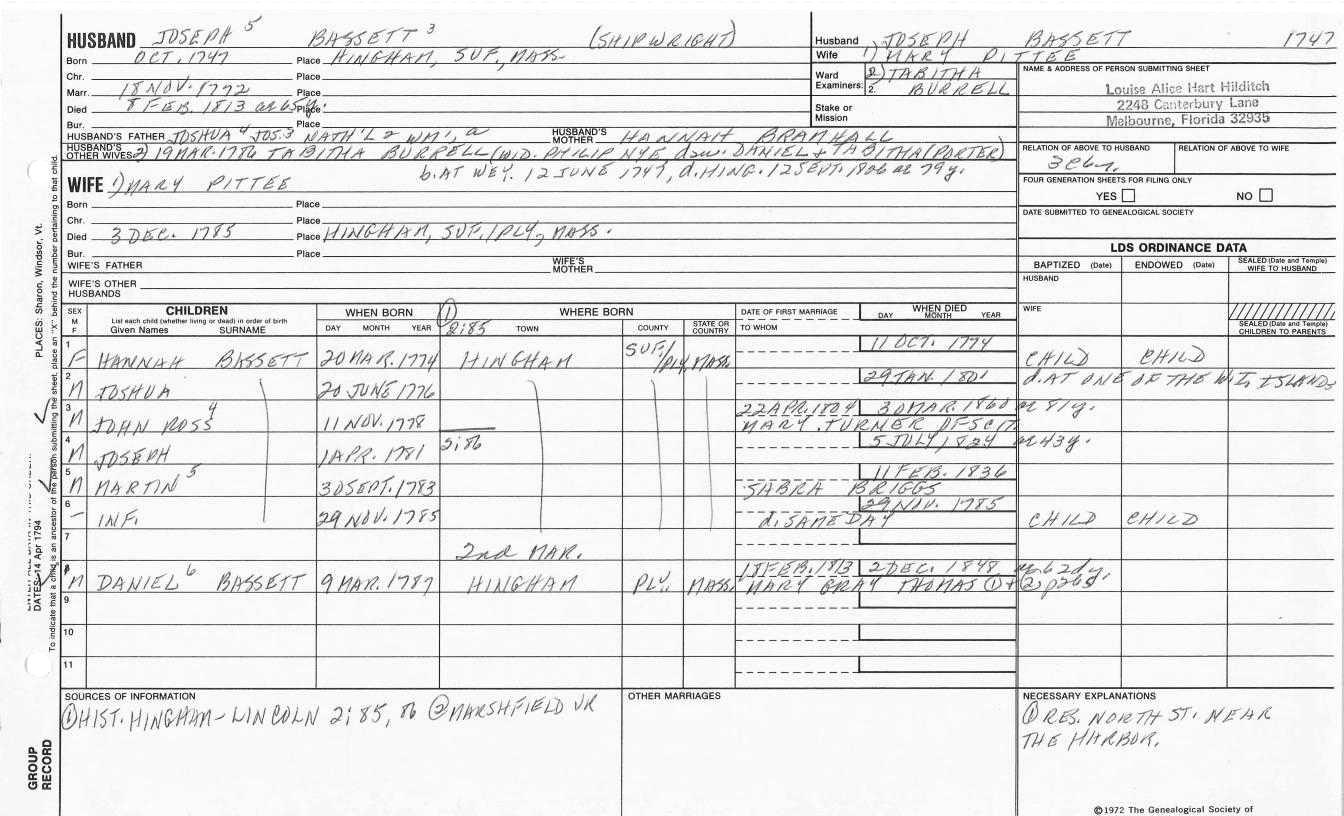 HUSBAND JOSEPH 5 BASSETT 3 (SHIPWRIGHT)
Born OCT. 1747 Place HINGHAM, SUF., MASS.
Chr. Place
Marr. 18 NOV. 1772 Place
Died 8 FEB. 1813 ae 65 y. Place
Bur. Place
HUSBAND'S FATHER JOSHUA 4 JOS.3 NATH'L 2 WM', a HUSBAND'S MOTHER HANNAH BRAMHALL
HUSBAND'S OTHER WIVES 2) 19 MAR. 1786 TABITHA BURRELL (WID. PHILIP NYE daw. DANIEL & TABITHA (PORTER)
b. AT WEY. 12 JUNE 1747, d. HING. 12 SEPT. 1826 ae 79 y.
WIFE 1) MARY PITTEE
Born Place
Chr. Place
Died 3 DEC. 1785 Place HINGHAM, SUF./PLY., MASS.
Bur. Place
WIFE'S FATHER WIFE'S MOTHER
WIFE'S OTHER HUSBANDS
Husband JOSEPH BASSETT 1747
Wife 1) MARY PITTEE
Ward Examiners: 2) TABITHA
2. BURRELL
Stake or Mission
NAME & ADDRESS OF PERSON SUBMITTING SHEET
Louise Alice Hart Hilditch
2248 Canterbury Lane
Melbourne, Florida 32935
RELATION OF ABOVE TO HUSBAND RELATION OF ABOVE TO WIFE
FOUR GENERATION SHEETS FOR FILING ONLY
YES NO
DATE SUBMITTED TO GENEALOGICAL SOCIETY
LDS ORDINANCE DATA
BAPTIZED (Date) ENDOWED (Date) SEALED (Date and Temple) WIFE TO HUSBAND
HUSBAND
WIFE
SEALED (Date and Temple) CHILDREN TO PARENTS
SEX M F CHILDREN WHEN BORN 1 WHERE BORN DATE OF FIRST MARRIAGE WHEN DIED
List each child (whether living or dead) in order of birth
Given Names SURNAME DAY MONTH YEAR 2:85 TOWN COUNTY STATE OR COUNTRY TO WHOM DAY MONTH YEAR
1 11 OCT. 1774
F HANNAH BASSETT 20 MAR. 1774 HINGHAM SUF./PLY. MASS. CHILD CHILD
2 29 JAN. 1801 d. AT ONE OF THE W. I. ISLANDS
M JOSHUA 20 JUNE 1776
3 22 APR. 1804 30 MAR. 1860 ae 81 y.
M JOHN ROSS 4 11 NOV. 1778 MARY TURNER OF SCIT.
4 2:86 5 JULY 1824 ae 43 y.
M JOSEPH 1 APR. 1781
5 11 FEB. 1836
M MARTIN 5 30 SEPT. 1783 SABRA BRIGGS
6 29 NOV. 1785
– INF. 29 NOV. 1785 d. SAME DAY CHILD CHILD
7 2nd MAR.
8 18 FEB. 1813 2 DEC. 1848
M DANIEL 6 BASSETT 9 MAR. 1787 HINGHAM PLY. MASS. MARY GRAY THOMAS 1 + 2 p265
9
10
11
SOURCES OF INFORMATION
1 HIST. HINGHAM-LINCOLN 2:85, 86 2 MARSHFIELD VR
OTHER MARRIAGES
NECESSARY EXPLANATIONS
1 RES. NORTH ST. NEAR
THE HARBOR.
©1972 The Genealogical Society of
PLACES: Sharon, Windsor, Vt.
DATES: 14 Apr 1794
To indicate that a child is an ancestor of the person submitting the sheet, place an "X" behind the number pertaining to that child.
GROUP RECORD